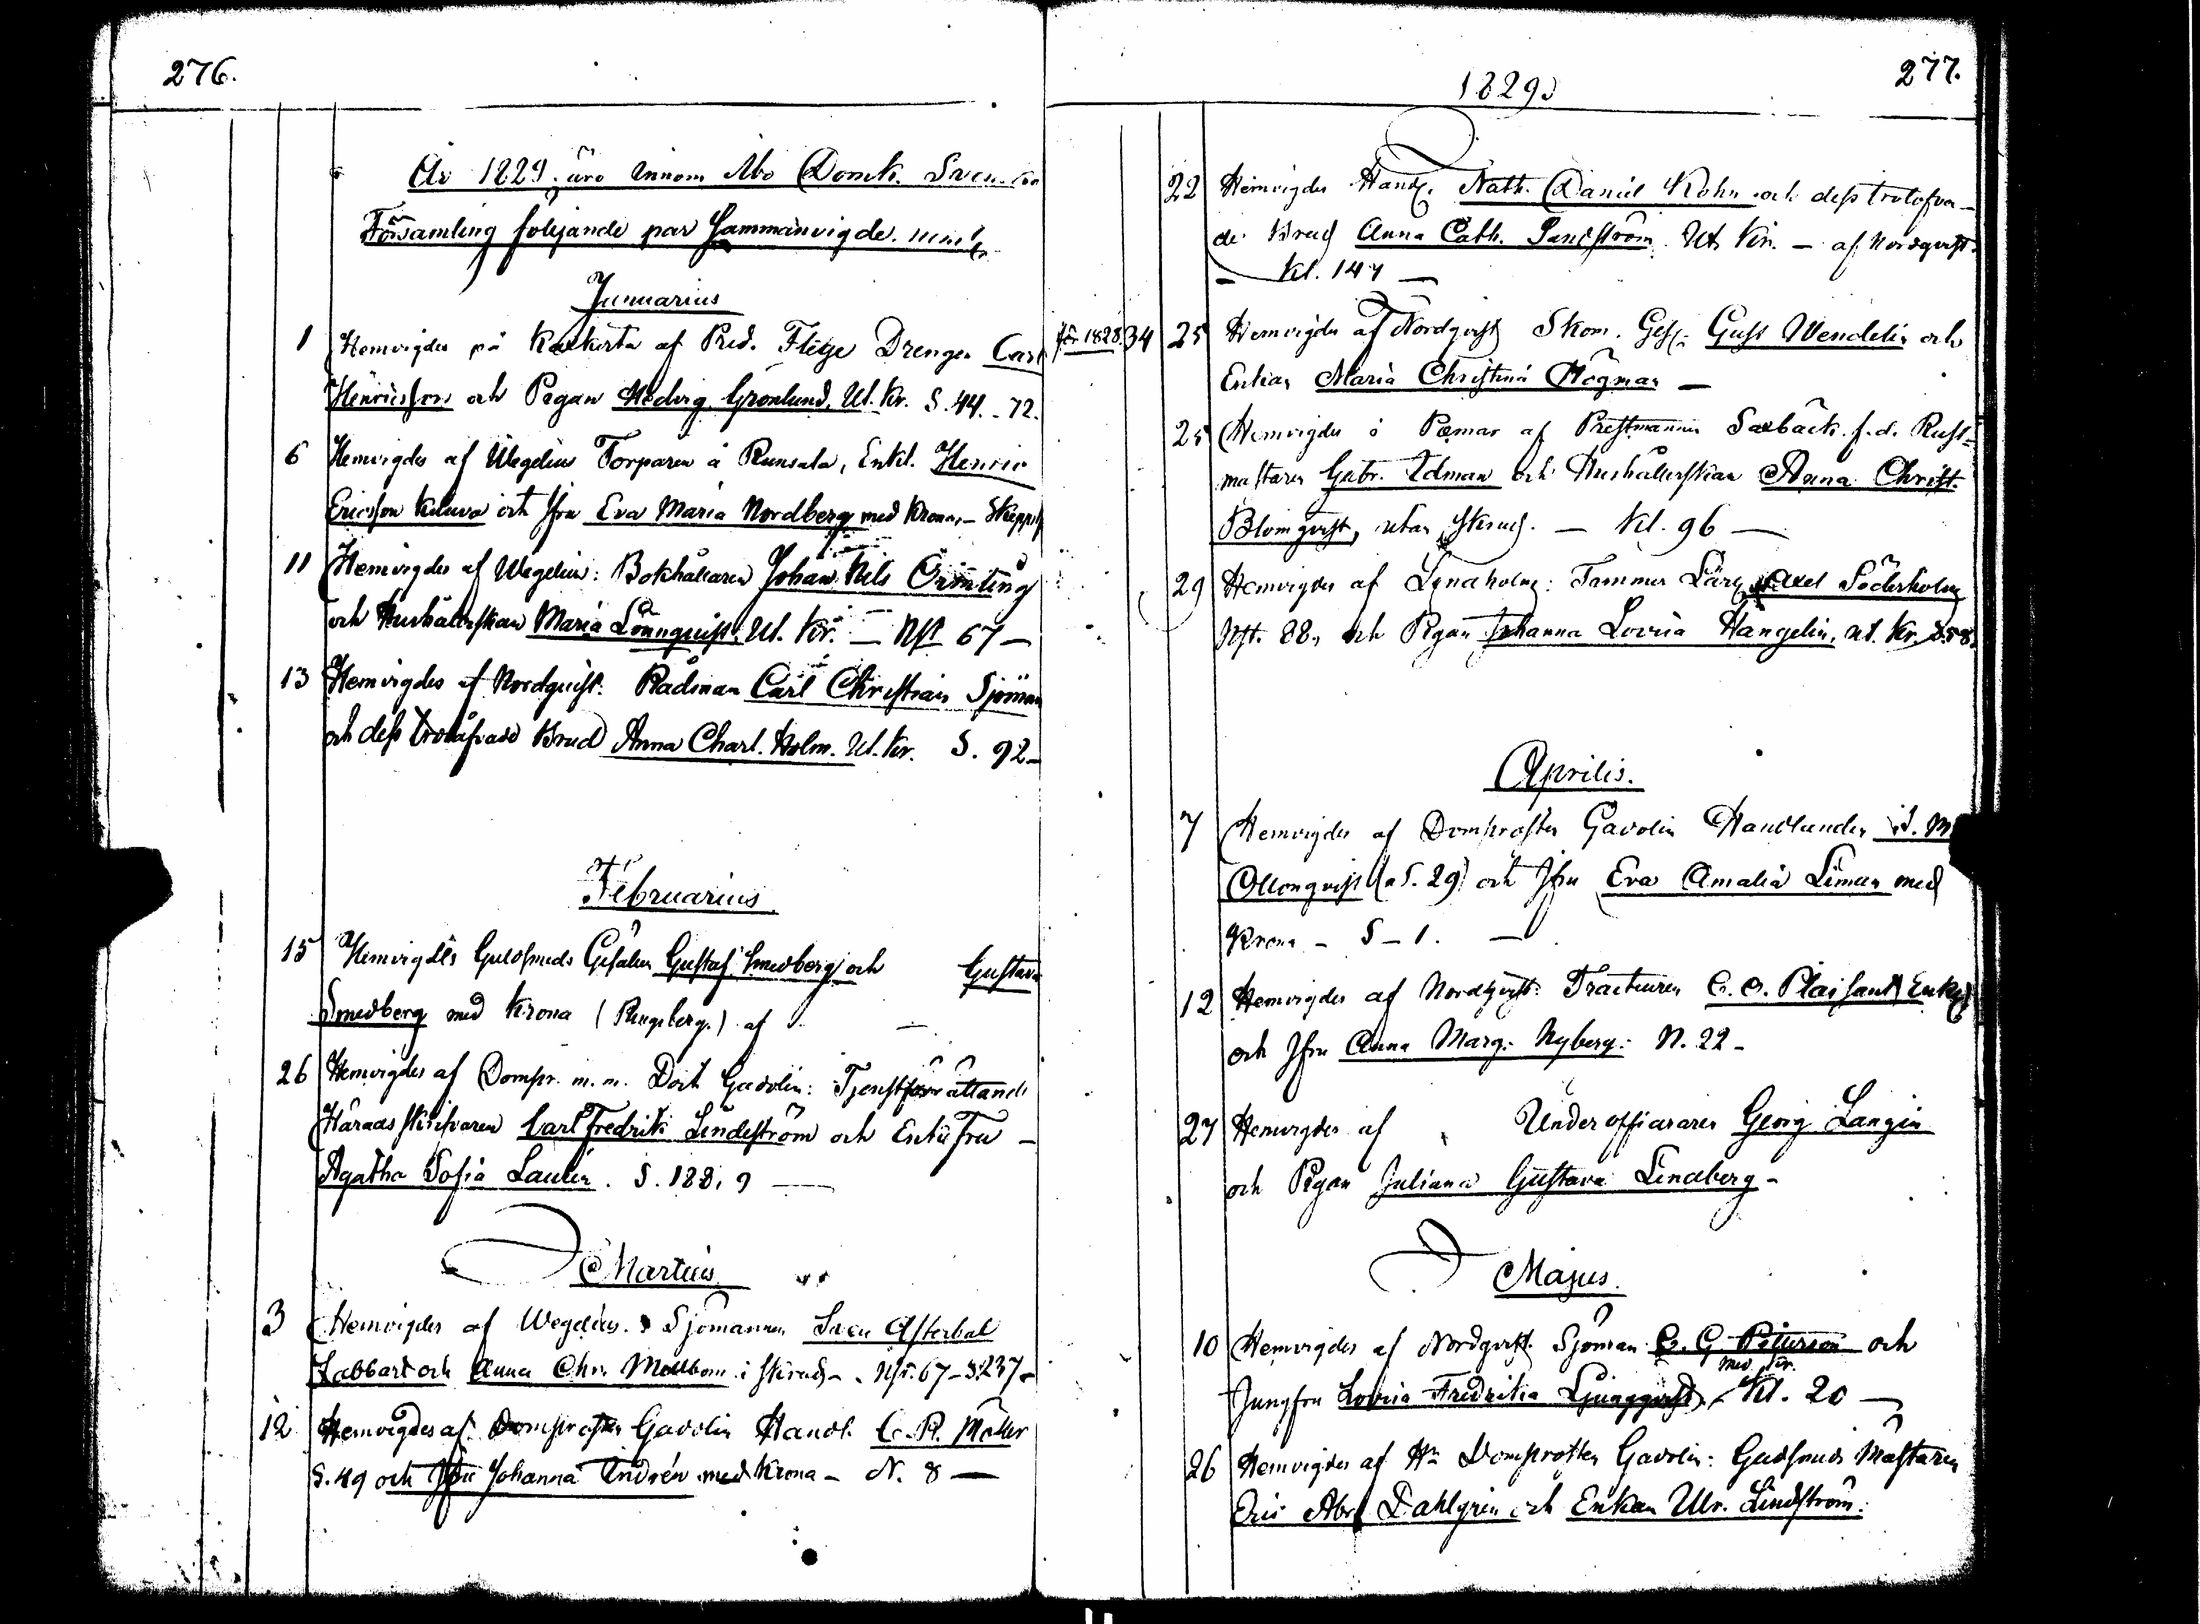 276.
År 1829. äro innom Åbo Domk. Svenska
Församling följande par Sammanvigde. nml.
Januarius
1 Hemvigdes på Kaskerta af Pred. Flege Drengen Carl
Henricsson och Pigan Hedvig Grönlund. Ut. Kr. S. 44. - 72.
6 Hemvigdes af Wegelius Torparen å Runsala, Enkl. Henric
Ericsson och Jfru Eva Maria Nordberg med Krona, -
11 Hemvigdes af Wegelius: Bokhållaren Johan Nils Örnling
och Hushållerskan Maria Lönnquist. Ut. Kr. — Nst 67 —
13 Hemvigdes af Nordquist: Rådman Carl Christian Sjöman
och dess trolofvade Brud Anna Charl. Holm. Ut. Kr. S. 92 —
Februarius
15 Hemvigdes Guldsmeds Gesällen Gustaf Smedberg och Gustava
Smedberg med Krona (Ringsberg.) af
26 Hemvigdes af Dompr. m.m. Doct Gadolin: Tjenstförrättande
Häradsskrifvaren Carl Fredrik Lindeström och Enkefru —
Agatha Sofia Laulin. S. 188. 9 —
Martius
3 Hemvigdes af Wegelius. Sjömannen Sven Asterbal
Labbart och Anna Chr. Mellbom i Nst. 67 - S. 237 -
12 Hemvigdes af Domprosten Gadolin Handl. C. R. Möller
S. 49 och Jfru Johanna Indrén med Krona - N. 8 —
277.
1829.
22 Hemvigdes Handl. Nath. Daniel Kohn och dess trolofva-
de Brud Anna Cath. Sandström. Ut Kr. — af Nordqvist.
— Kl. 147 —
för 1828. 34 25 Hemvigdes af Nordqvist Skom. Ges. Gust Wendelin och
Enkan Maria Christina Högman —
25 Hemvigdes i Pemar af Prestmannen Saxbäck f.d. Rust-
mästaren Gabr. Idman och Hushållerskan Anna Christ.
Blomqvist, utan — Kl. 96 —
29 Hemvigdes af Lindholm: Timmer Lärl. Axel Söderholm
Nst. 88., och Pigan Johanna Lovisa Hangelin, ut. Kr. S. 58.
Aprilis.
7 Hemvigdes af Domprosten Gadolin Handlanden
Ollonqvist (S. 29) och Jfru Eva Amalia Liman med
Krona - S - 1. —
12 Hemvigdes af Nordqvist: Tracteuren C. O. Plaisant Enkl
och Jfru Anna Marg: Nyberg: N. 22 -
27 Hemvigdes af Underofficeraren Georg Langin
och Pigan Juliana Gustava Lindberg -
Majus.
10 Hemvigdes af Nordqvist. Sjöman C. G. Petterson och
med Kr.
Jungfru Lovisa Fredrika Ljungqvist. - Kl. 20 —
26 Hemvigdes af Hr Domprosten Gadolin: Guldsmeds Mästaren
Eric Abr. Dahlgren och Enkan Ulr. Lindström: